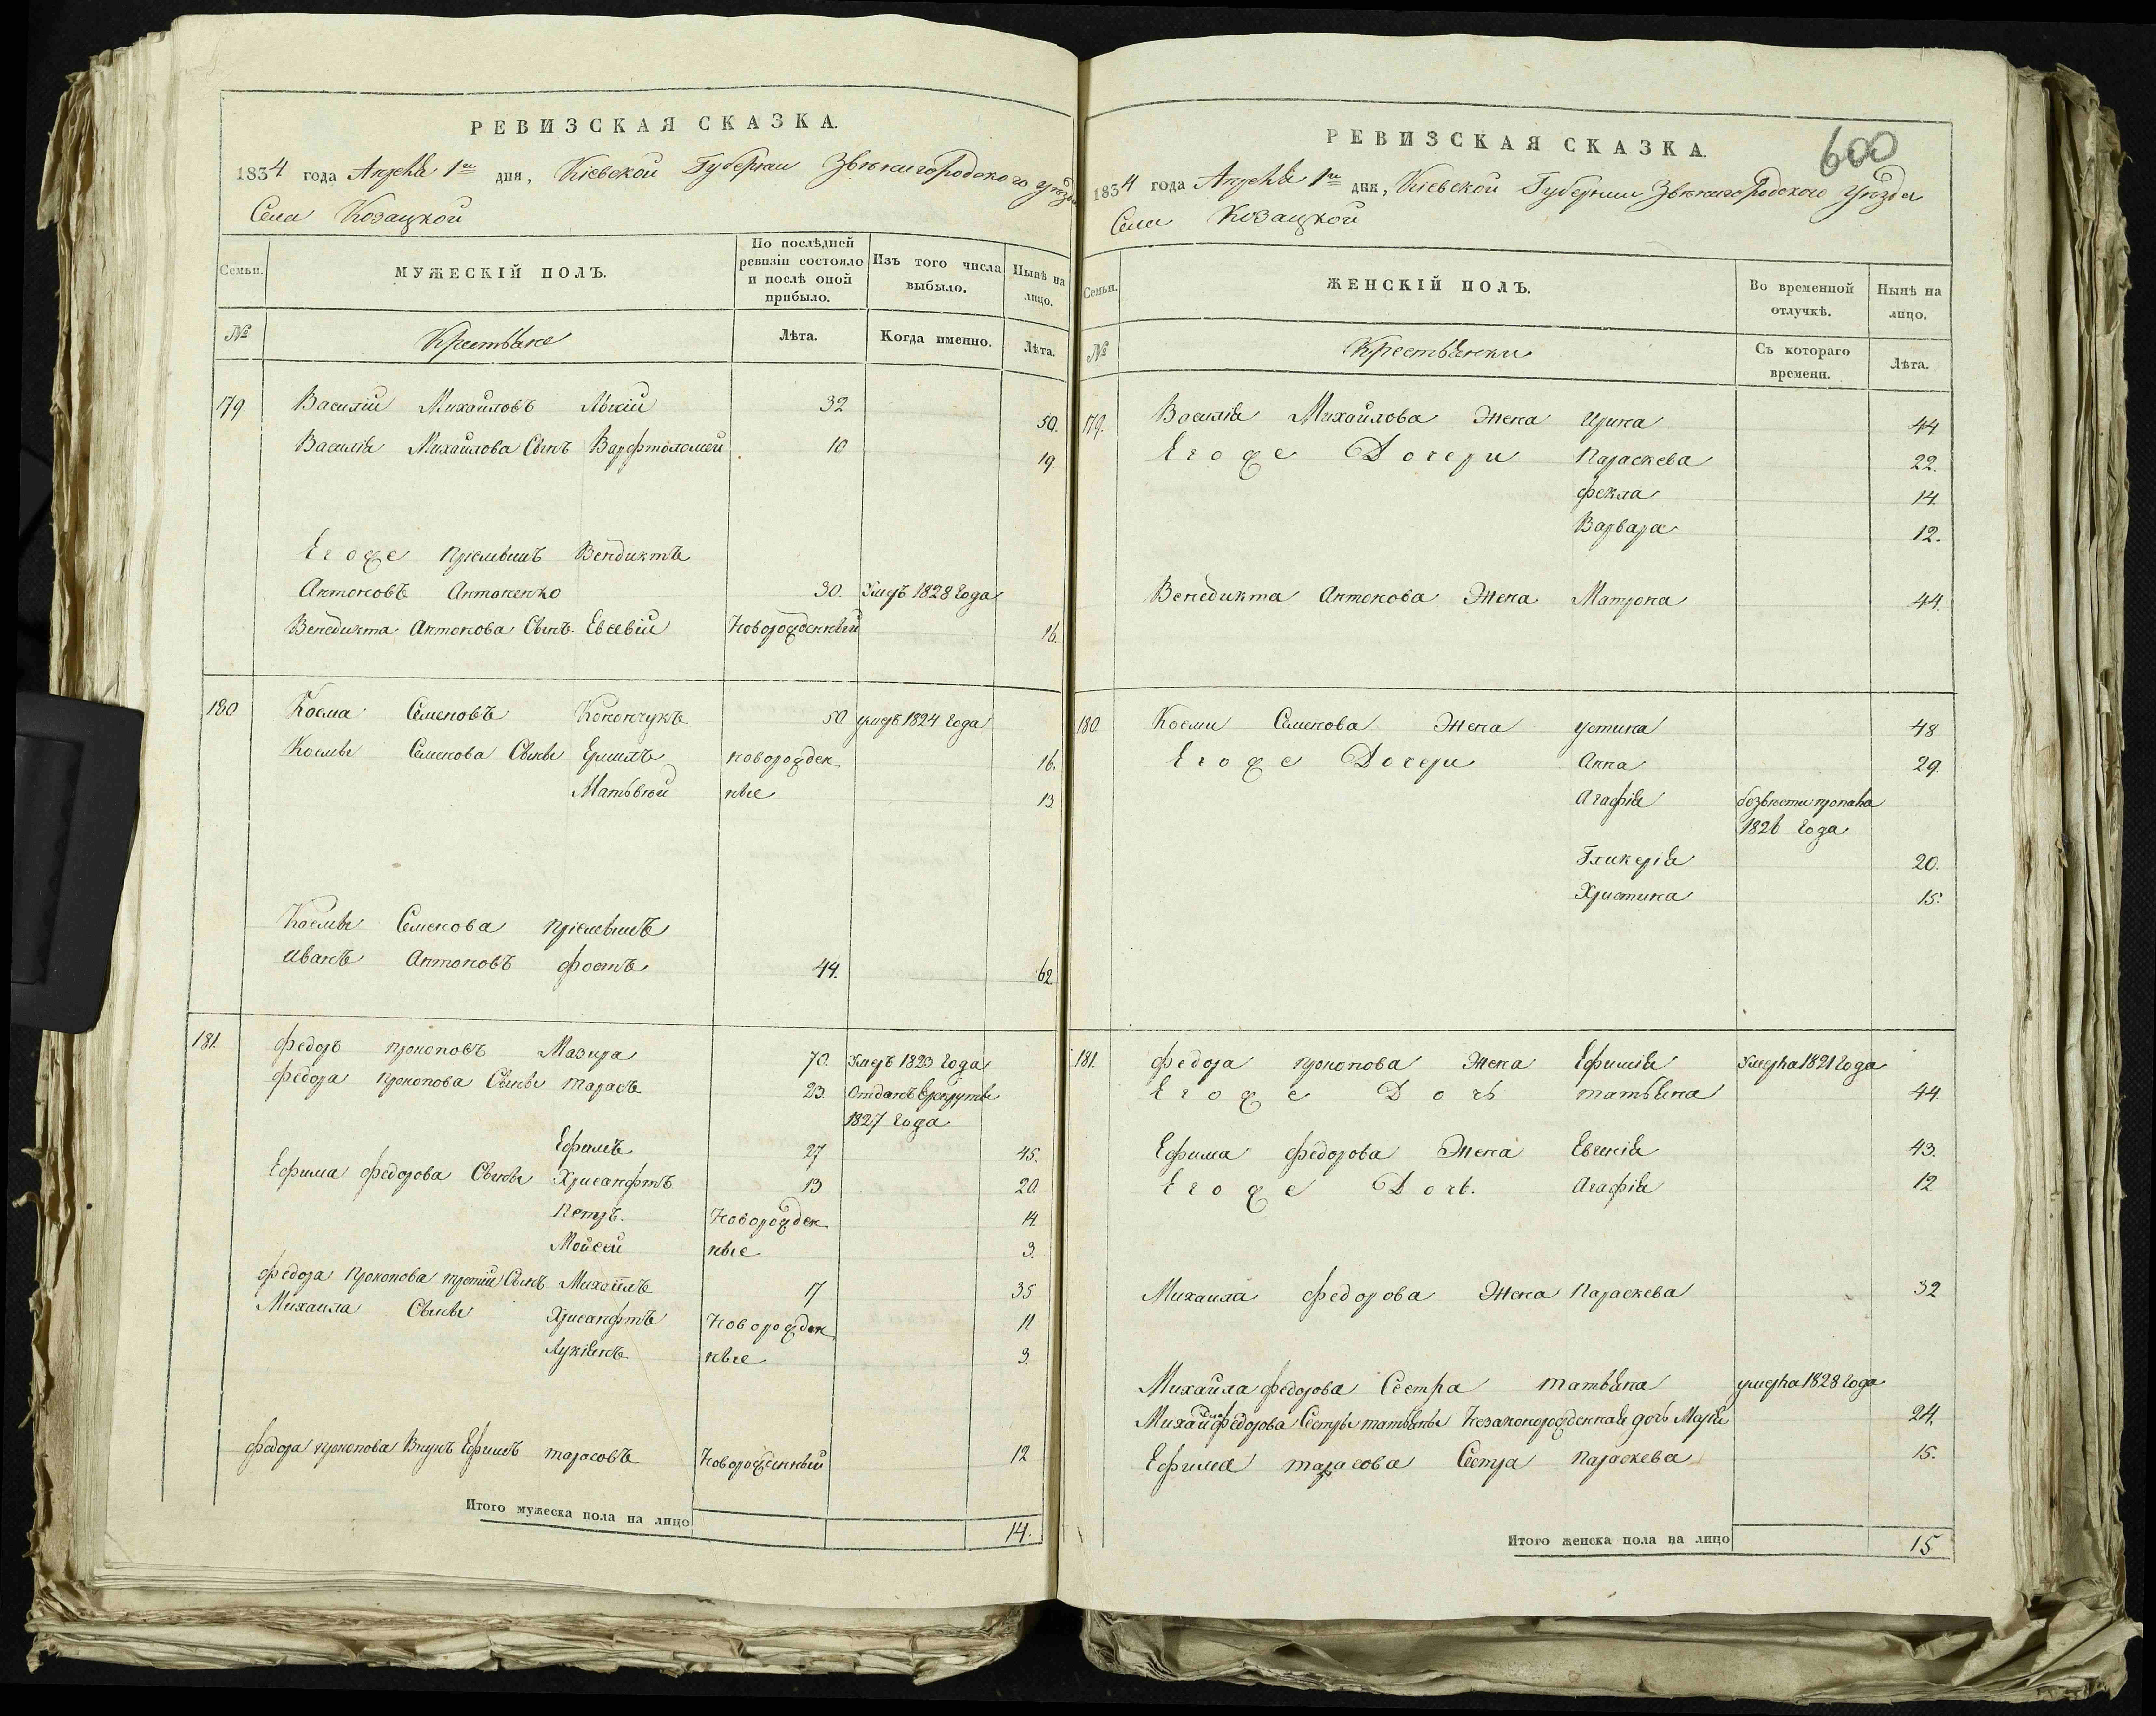 РЕВИЗСКАЯ СКАЗКА.
1834 года Апреля 1го дня, Кіевской Губерніи Звенигородского уезда
Села Козацкой
Семьи. МУЖЕСКІЙ ПОЛЪ. По послѣдней ревизіи состояло и послѣ оной прибыло. Изъ того числа выбыло. Нынѣ на лицо.
№ Крестьяне Лѣта. Когда именно. Лѣта.
179 Василій Михайловъ 32 50.
Василія Михайлова Сынъ Варфтоломей 10 19
Егоже пріемышъ Вендиктъ
Антоновъ Антоненко 30. Умеръ 1828 года
Венедикта Антонова Сынъ Евсевій Новорожденный 16.
180 Косма Семеновъ Конончукъ 50 умеръ 1824 года
Космы Семенова Сыны Ермилъ новорожден 16.
Матвѣй ные 13
Космы Семенова пріемышъ
Иванъ Антоновъ Фостъ 44. 62
181. Федоръ Прокоповъ Мазира 70. Умеръ 1823 года
Федора Прокопова Сыны Тарасъ 23. Отданъ Врекруты
1827 года
Ефимъ 27 45.
Ефима Федорова Сыны Хрисанфтъ 13 20.
Петръ. Новорожден 14.
Мойсей ные 3.
Федора Прокопова третій Сынъ Михаилъ 17 35
Михаила Сыны Хрисанфтъ Новорожден 11
Лукіянъ ные 3.
Федора Прокопова Внукъ Ефимъ Тарасовъ Новорожденный 12
Итого мужеска пола на лицо 14.
600
РЕВИЗСКАЯ СКАЗКА.
1834 года Апреля 1го дня, Кіевской Губерніи Звенигородского уезда
Села Козацкой
Семьи. ЖЕНСКІЙ ПОЛЪ. Во временной отлучкѣ. Нынѣ на лицо.
№ Крестьянки Съ котораго времени. Лѣта.
179. Василія Михайлова Жена Ирина 44
Егоже Дочери Параскева 22.
Фекла 14.
Варвара 12.
Венедикта Антонова Жена Матрона 44.
180 Косми Семенова Жена Устина 48
Егоже Дочери Анна 29.
Агафія безвести пропала
1826 года
Гликерія 20.
Христина 15.
181. Федора Прокопова Жена Ефимія Умерла 1821 года
Егоже Дочь Татьяна 44
Ефима Федорова Жена Евгенія 43.
Егоже Дочь. Агафія 12
Михаила Федорова Жена Параскева 32
Михайла Федорова Сестра Татьяна умерла 1828 года
Михайла Федорова Сестры Татьяны Незаконорожденная дочь Марія 24.
Ефима Тарасова Сестра Параскева 15.
Итого женска пола на лицо 15